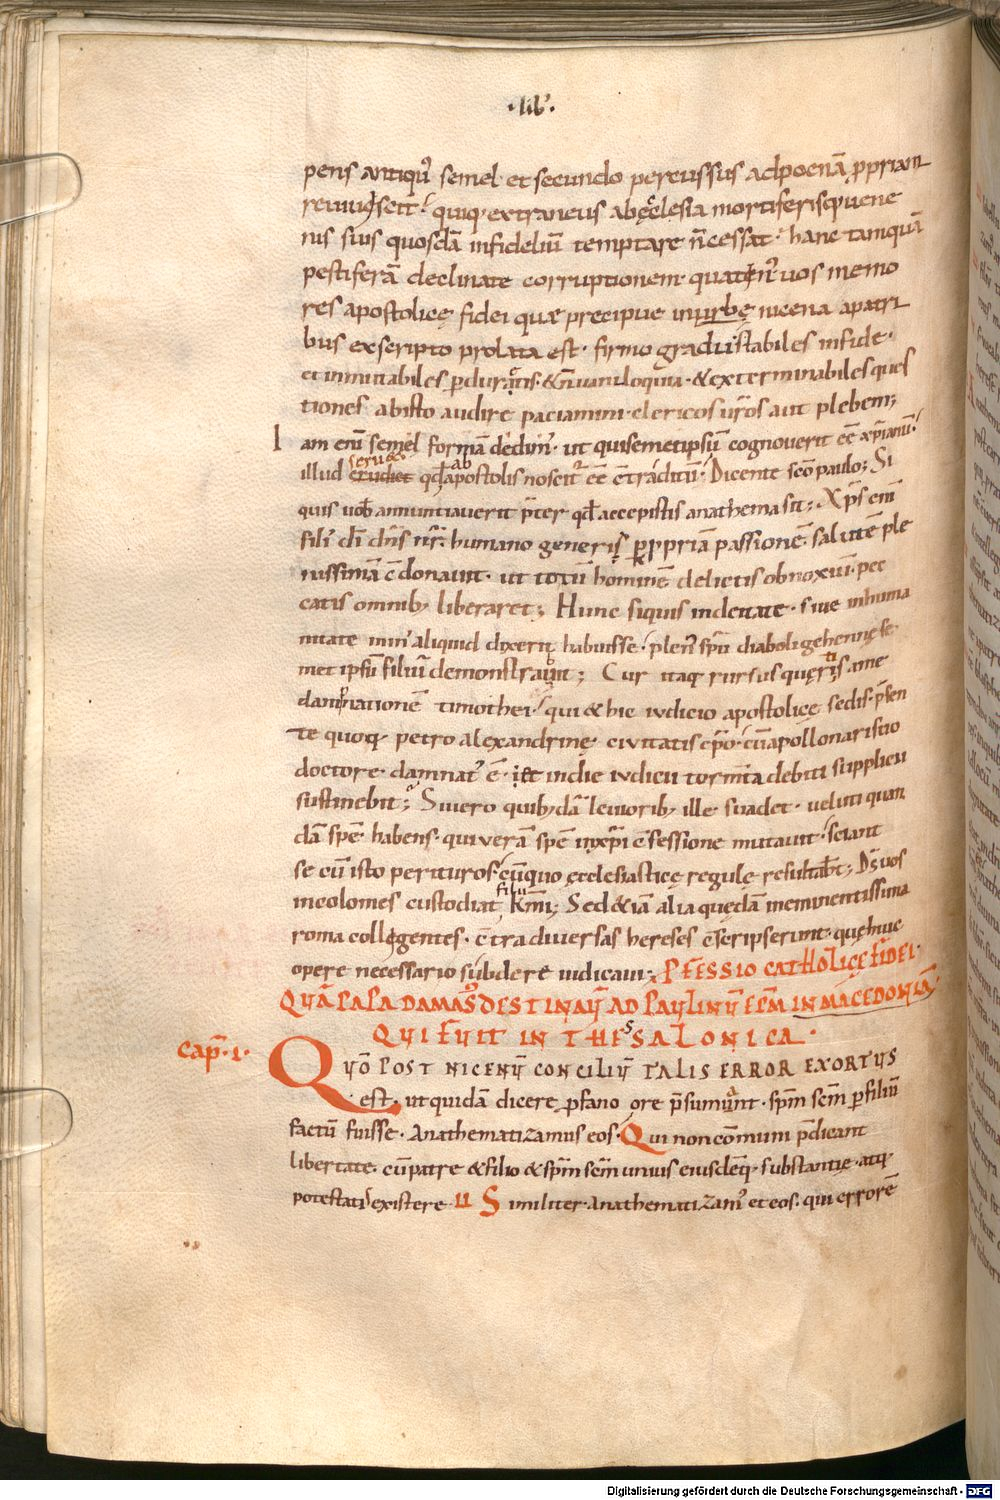 ·lib᷒·
pens antiqu᷒ semel et secundo percussus ad poenā ꝓpriam
reuuixerit quiq; extraneus ab ęcclesia mortiferisq; uene
nis suis quosdā infideliū temptare n̄ cessat· hanc tamquā
pestiferā declinate corruptionem· quaten᷒ uos memo
res apostolicę fidei quae precipue in urbe nicena a patri
bus ex scripto prolata est· firmo gradu stabiles in fide·
et inmutabiles ꝑduratis· & n̄ uaniloquia· & exterminabiles ques
tiones ab isto audire paciamini· clericos ur̄os aut plebem;
Iam eni semel formā dedim᷒· ut qui semetipsū cognouerit eē xp̄ianū·
illud seruet qd̄ ab apostolis noscit᷒ eē traditū· Dicente sc̄o paulo; Si
quis uob̄ annuntiauerit p̄ter qd̄ accepistis anathema sit; Xp̄s eni
fili᷒ dī dn̄s nr̄· humano generi ꝑ ꝓpriā passionē· salutē ple
nissimā c̄donauit· ut totū hominē delictis obnoxiū· pec
catis omnib; liberaret; Hunc siquis in deitate· siue in huma
nitate min᷒ aliquid dixerit habuisse· plen᷒ sp̄u diaboli gehennę se
met ipsū filiū demonstrauit; Cur itaq; rursus queritis a me
damnationē timothei· qui & hic iudicio apostolicę sedis· p̄sen
te quoq; petro alexandrinę ciuitatis ep̄o· cū apollonaristio
doctore· damnat᷒ ē· et in die iudicii tormta debiti supplicii
sustinebit; Si uero quib;dā leuiorib; ille suadet· ueluti quan
dā spē· habens· qui uerā spē in xp̄i c̄fessione mutauit· sciant
se cū isto perituros· cū quo ęcclesiasticę regulę resultabit; Ds̄ uos
incolomes custodiat filii km̄i; Sed & iā alia quędā in eminentissima
roma colligentes· c̄tra diuersas hereses c̄scripserunt· quę huic
opere necessario subdere iudicaui; PFESSIO CATHOLICĘ FIDEI·
QUĀ PAPA DAMAS᷒ DESTINAUT AD PAULINŪ EP̄M IN MACEDONIĀ
QUI FUIT IN THESSALONICA·
Cap̄·1·
QUŌ POST NICENŪ CONCILIŪ TALIS ERROR EXORTUS
est· ut quidā dicere ꝓfano ore p̄sumant· sp̄m sc̄m ꝑ filiū
factū fuisse· Anathematizamus eos· Qui non com̄uni p̄dicant
libertate· cū patre & filio & sp̄m sc̄m unius eiusdēq; substantię· atq;
potestati existere II Similiter anathematizam᷒ et eos· qui errorē
Digitalisierung gefördert durch die Deutsche Forschungsgemeinschaft - DFG